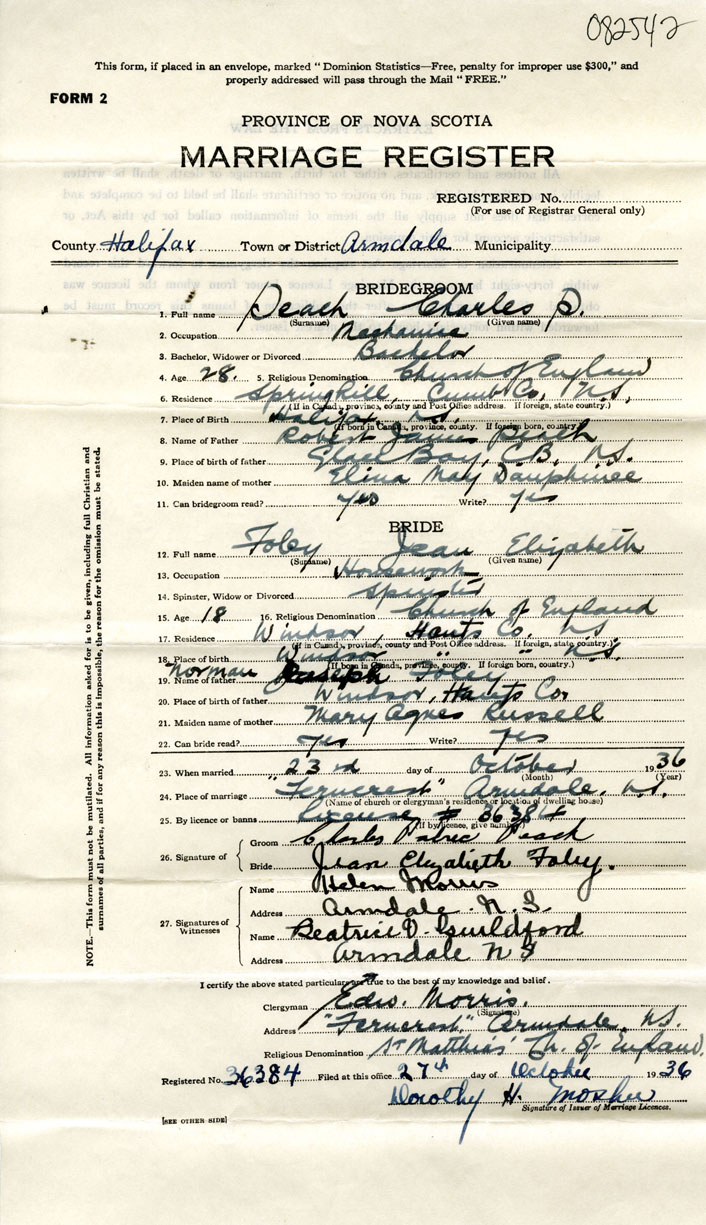 082542
This form, if placed in an envelope, marked "Dominion Statistics—Free, penalty for improper use $300," and
properly addressed will pass through the Mail "FREE."
FORM 2
PROVINCE OF NOVA SCOTIA
MARRIAGE REGISTER
REGISTERED No.
(For use of Registrar General only)
County Halifax Town or District Armdale Municipality
BRIDEGROOM
1. Full name Peach Charles P.
(Surname) (Given name)
2. Occupation Mechanic
3. Bachelor, Widower or Divorced Bachelor
4. Age 28. 5. Religious Denomination Church of England
6. Residence Springhill, Cumb. Co., N.S.
(If in Canada, province, county and Post Office address. If foreign, state country.)
7. Place of Birth Halifax, N.S.
(If born in Canada, province, county. If foreign born, country.)
8. Name of Father Robert James Peach
9. Place of birth of father Glace Bay, C.B., N.S.
10. Maiden name of mother Elina May Dauphinee
11. Can bridegroom read? yes Write? yes
BRIDE
12. Full name Foley Jean Elizabeth
(Surname) (Given name)
13. Occupation Housework
14. Spinster, Widow or Divorced Spinster
15. Age 18 16. Religious Denomination Church of England
17. Residence Windsor, Hants Co. NS
(If in Canada, province, county and Post Office address. If foreign, state country.)
18. Place of birth Windsor " " N.S.
(If born in Canada, province, county. If foreign born, country.)
19. Name of father Norman Joseph Foley
20. Place of birth of father Windsor, Hants Co.
21. Maiden name of mother Mary Agnes Russell
22. Can bride read? yes Write? yes
23. When married "23rd day of October 1936
(Month) (Year)
24. Place of marriage "Ferncrest" Armdale, N.S.
(Name of church or clergyman's residence or location of dwelling house)
25. By licence or banns License # 36384
(If by licence, give number.)
26. Signature of
Groom Charles Peach
Bride Jean Elizabeth Foley.
27. Signatures of Witnesses
Name Helen Morris
Address Armdale N.S.
Name Beatrice D. Guildford
Address Armdale N S
I certify the above stated particulars are true to the best of my knowledge and belief.
Clergyman Edw. Morris.
(Signature)
Address "Ferncrest" Armdale, N.S.
Religious Denomination St Matthias' Ch. of England.
Registered No. 36384 Filed at this office 27th day of October 1936
Dorothy H. Mosher
Signature of Issuer of Marriage Licences.
[SEE OTHER SIDE]
NOTE.—This form must not be mutilated. All information asked for is to be given, including full Christian and
surnames of all parties, and if for any reason this is impossible, the reason for the omission must be stated.